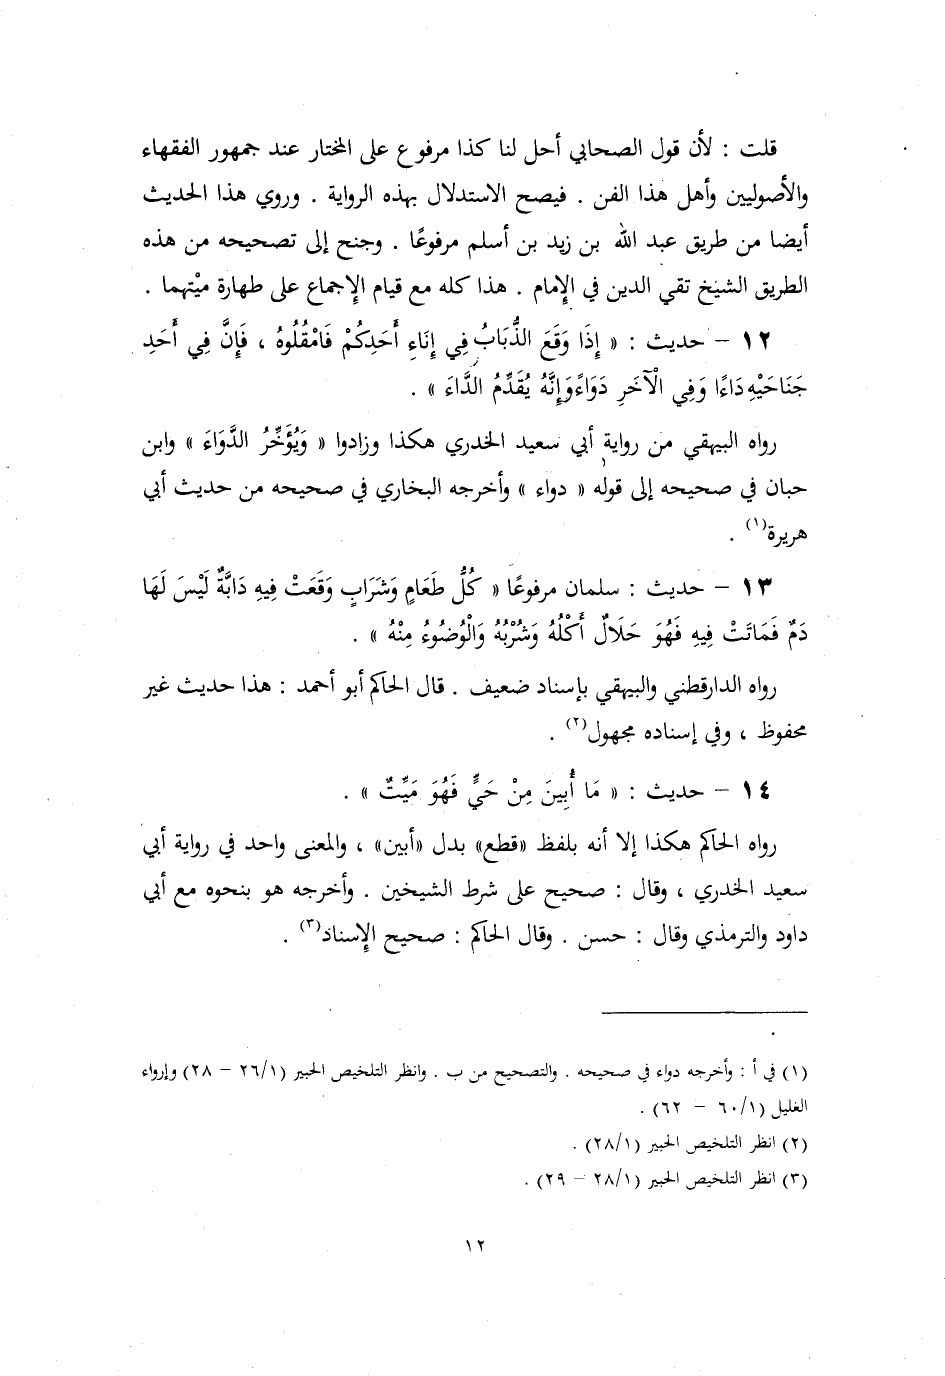 قلت : لأن قول الصحابي أحل لنا كذا مرفوع على المختار عند جمهور الفقهاء
والأصوليين وأهل هذا الفن . فيصح الاستدلال بهذه الرواية . وروي هذا الحديث
أيضا من طريق عبد الله بن زيد بن أسلم مرفوعًا . وجنح إلى تصحيحه من هذه
الطريق الشيخ تقي الدين في الإمام . هذا كله مع قيام الإجماع على طهارة ميْتهما .
١٢ – حديث : « إِذَا وَقَعَ الذُّبَابُ فِي إِنَاءِ أَحَدِكُمْ فَامْقُلُوهُ ، فَإِنَّ فِي أَحَدِ
جَنَاحَيْهِ دَاءًا وَفِي الْآخَرِ دَوَاءً وَإِنَّهُ يُقَدِّمُ الدَّاءَ » .
رواه البيهقي من رواية أبي سعيد الخدري هكذا وزادوا « وَيُؤَخِّرُ الدَّوَاءَ » وابن
حبان في صحيحه إلى قوله « دواء » وأخرجه البخاري في صحيحه من حديث أبي
هريرة(١) .
١٣ – حديث : سلمان مرفوعًا « كُلُّ طَعَامٍ وَشَرَابٍ وَقَعَتْ فِيهِ دَابَّةٌ لَيْسَ لَهَا
دَمٌ فَمَاتَتْ فِيهِ فَهُوَ حَلَالٌ أَكْلُهُ وَشُرْبُهُ وَالْوُضُوءُ مِنْهُ » .
رواه الدارقطني والبيهقي بإسناد ضعيف . قال الحاكم أبو أحمد : هذا حديث غير
محفوظ ، وفي إسناده مجهول(٢) .
١٤ – حديث : « مَا أُبِينَ مِنْ حَيٍّ فَهُوَ مَيِّتٌ » .
رواه الحاكم هكذا إلا أنه بلفظ «قطع» بدل «أبين» ، والمعنى واحد في رواية أبي
سعيد الخدري ، وقال : صحيح على شرط الشيخين . وأخرجه هو بنحوه مع أبي
داود والترمذي وقال : حسن . وقال الحاكم : صحيح الإسناد(٣) .
(١) في أ : وأخرجه دواء في صحيحه . والتصحيح من ب . وانظر التلخيص الحبير (٢٦/١ – ٢٨) وإرواء
الغليل (٦٠/١ – ٦٢) .
(٢) انظر التلخيص الحبير (٢٨/١) .
(٣) انظر التلخيص الحبير (٢٨/١ – ٢٩) .
١٢